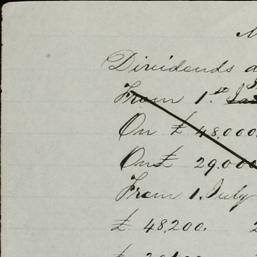 Dividends
From 1.st
On £ 48,000
On £ 29.000
From 1. July
£ 48,200. 2